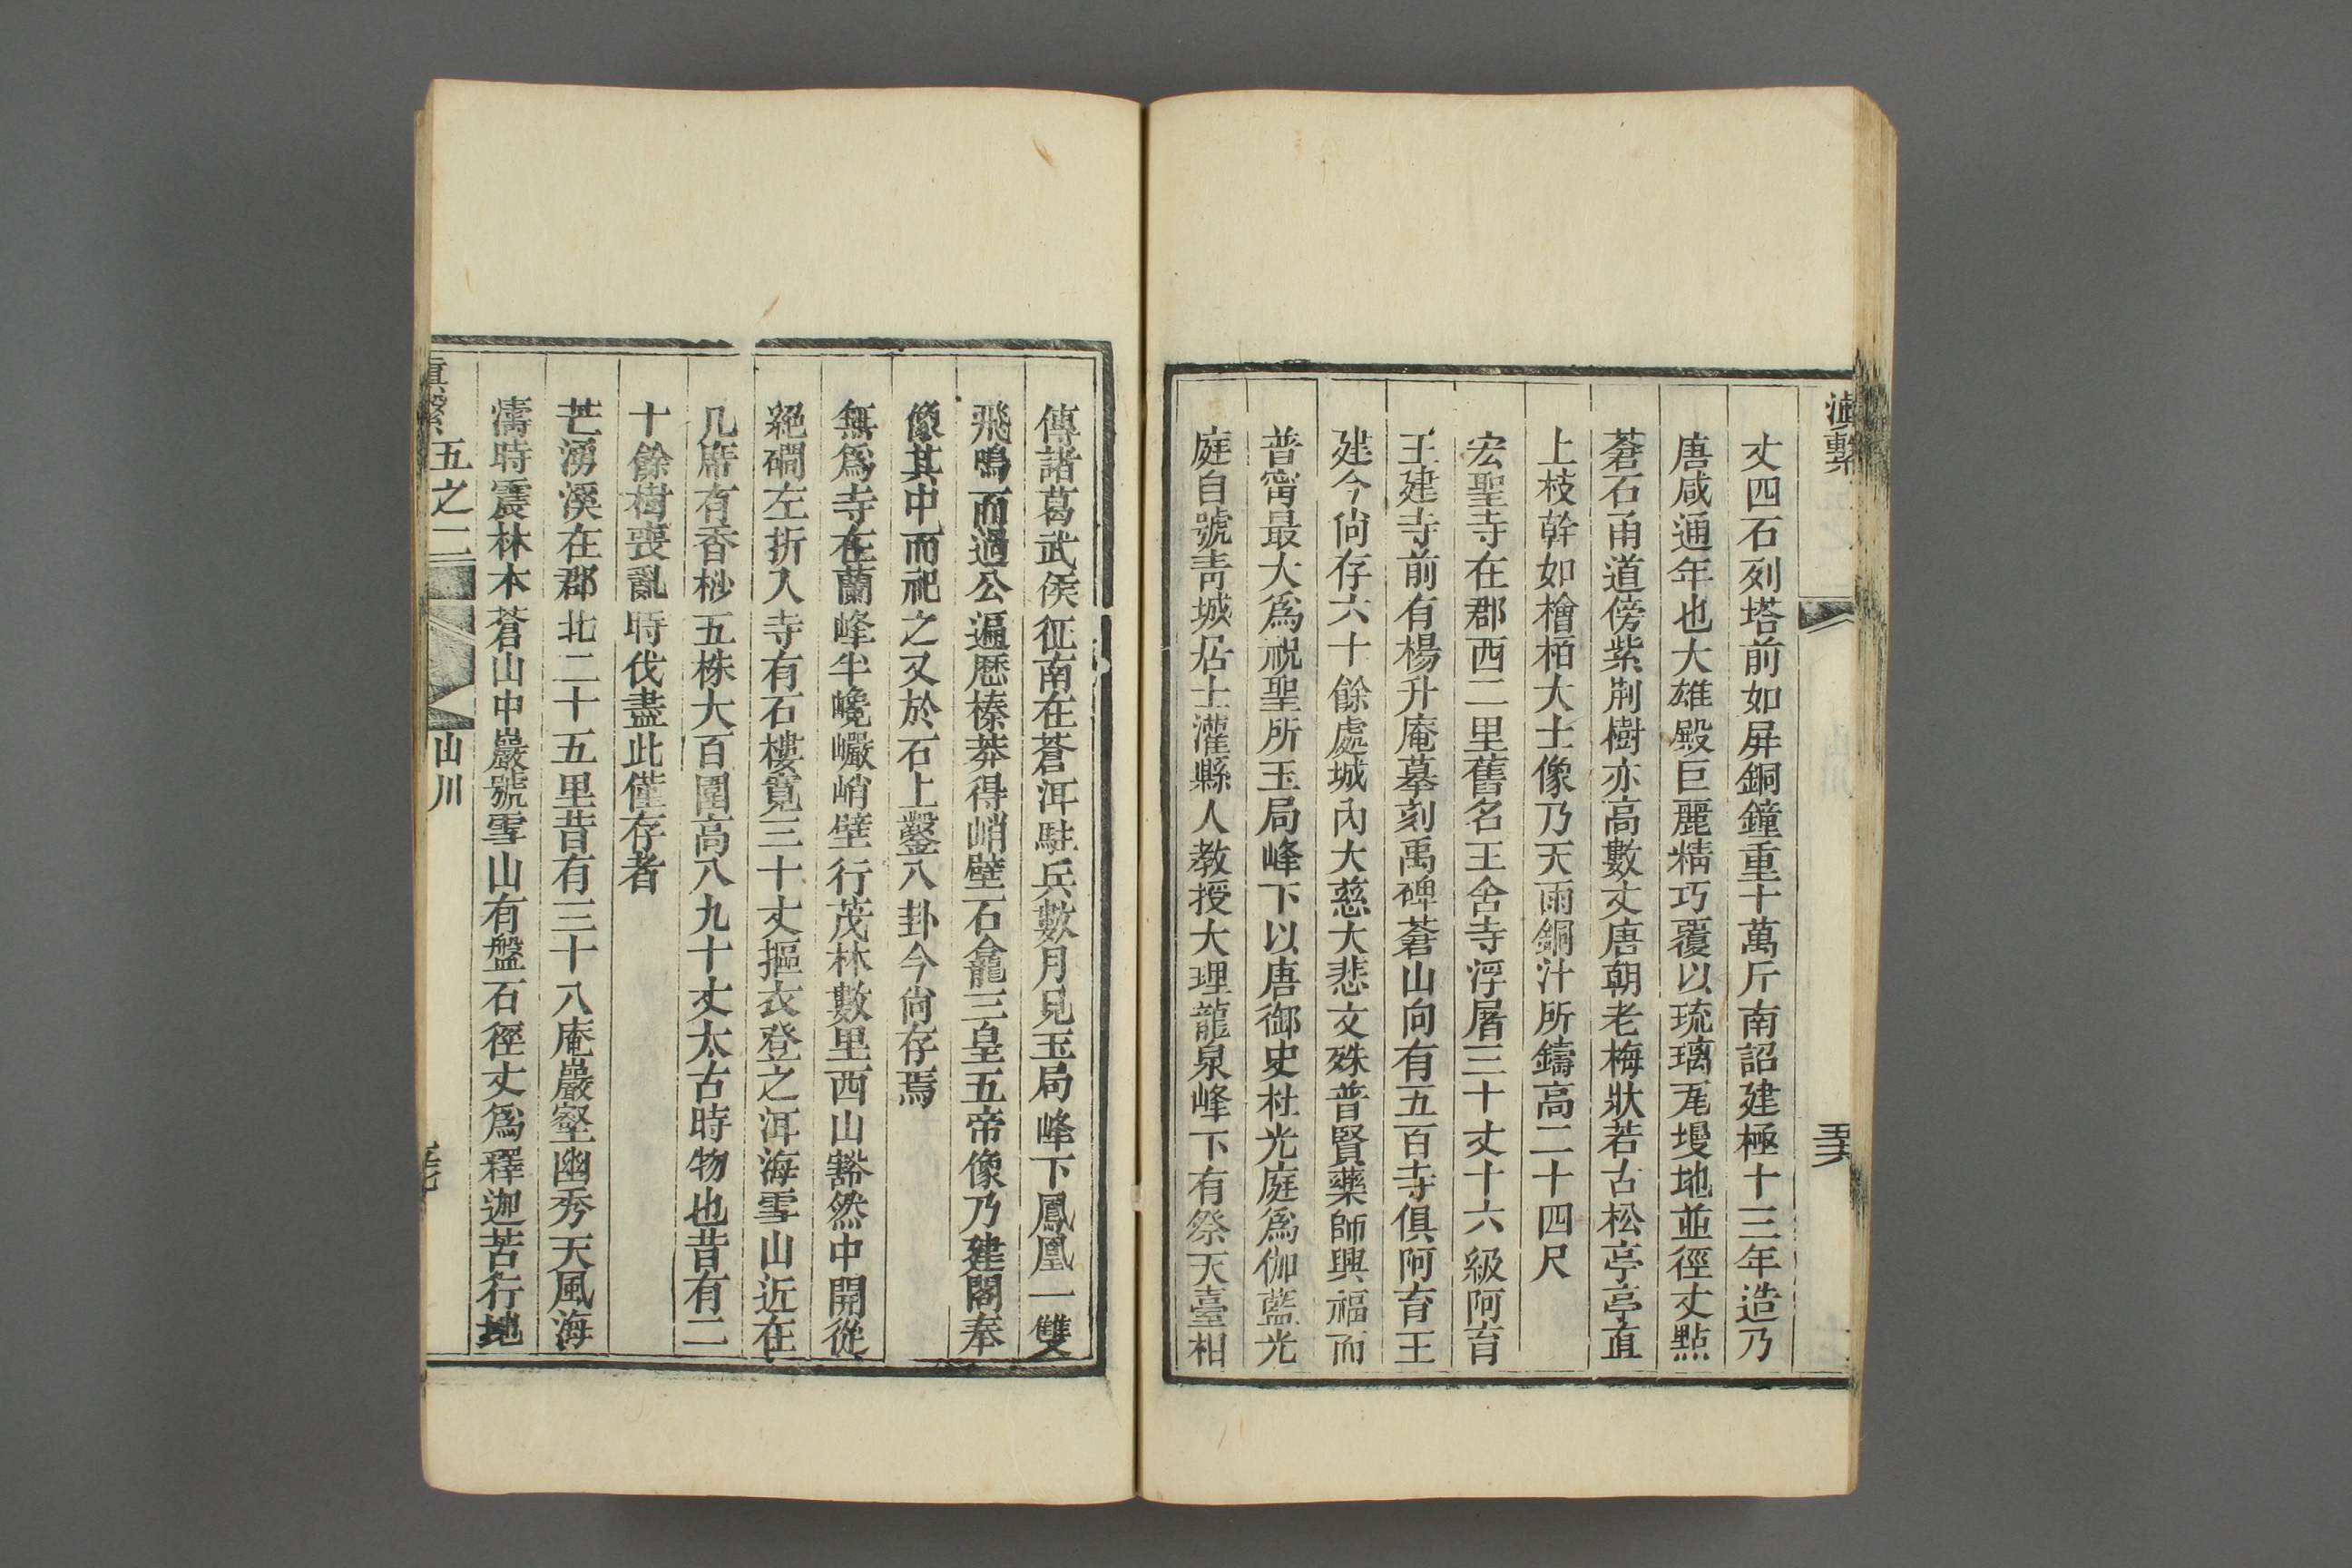 滇繫
五十六
丈四石列塔前如屏銅鐘重十萬斤南詔建極十三年造乃
唐咸通年也大雄殿巨麗精巧覆以琉璃㼚墁地並徑丈點
蒼石甬道傍紫荆樹亦高數丈唐朝老梅狀若古松亭亭直
上枝幹如檜栢大士像乃天雨銅汁所鑄高二十四尺
宏聖寺在郡西二里舊名王舍寺浮屠三十丈十六級阿育
王建寺前有楊升庵摹刻禹碑蒼山向有五百寺俱阿育王
建今尙存六十餘處城內大慈大悲文殊普賢藥師興福而
普甯最大爲祝聖所玉局峰下以唐御史杜光庭爲伽藍光
庭自號靑城居士灌縣人教授大理龍泉峰下有祭天臺相
傳諸葛武侯征南在蒼洱駐兵數月見玉局峰下鳳凰一雙
飛鳴而過公遍歷榛莽得峭壁石龕三皇五帝像乃建閣奉
像其中而祀之又於石上鑿八卦今尙存焉
無爲寺在蘭峰半巉巗峭壁行茂林數里西山豁然中開從
絕磵左折入寺有石樓寬三十丈摳衣登之洱海雪山近在
几席有香杪五株大百圍高八九十丈太古時物也昔有二
十餘樹喪亂時伐盡此僅存者
芒湧溪在郡北二十五里昔有三十八庵巖壑幽秀天風海
濤時震林木蒼山中巖號雪山有盤石徑丈爲釋迦苦行地
滇繫 五之二
山川